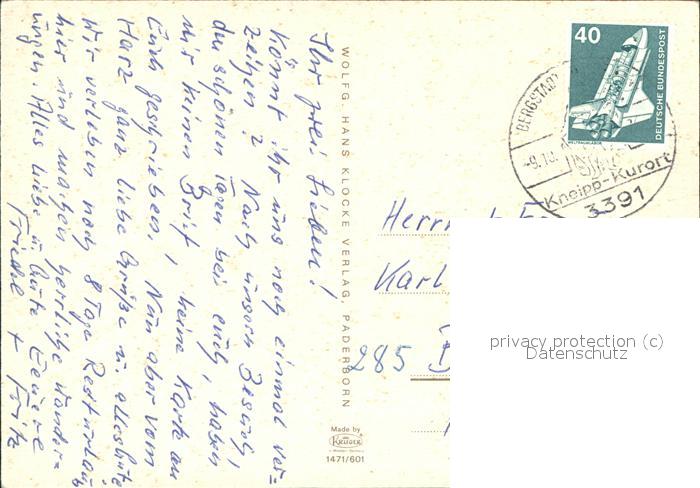 Ihr zwei Lieben!
Könnt ihr uns noch einmal ver=
zeihen? Nach unsern Besuch,
den schönen Tagen bei euch, haben
wir keinen Brief, keine Karte an
Euch geschrieben. Nun aber vom
Harz ganz liebe Grüße u. alles Gute
Wir verleben noch 8 Tage Resturlaub
hier und machen herrliche Wander=
ungen. Alles Liebe u. Gute Eure
Friedel + Fritz
WOLFG. HANS KLOCKE VERLAG, PADERBORN
Made by
KRÜGER
1471/601
40
DEUTSCHE BUNDESPOST
WELTRAUMLABOR
BERGSTADT
-9.10.
Kneipp-Kurort
3391
Herrn
Karl
285 B
privacy protection (c)
Datenschutz